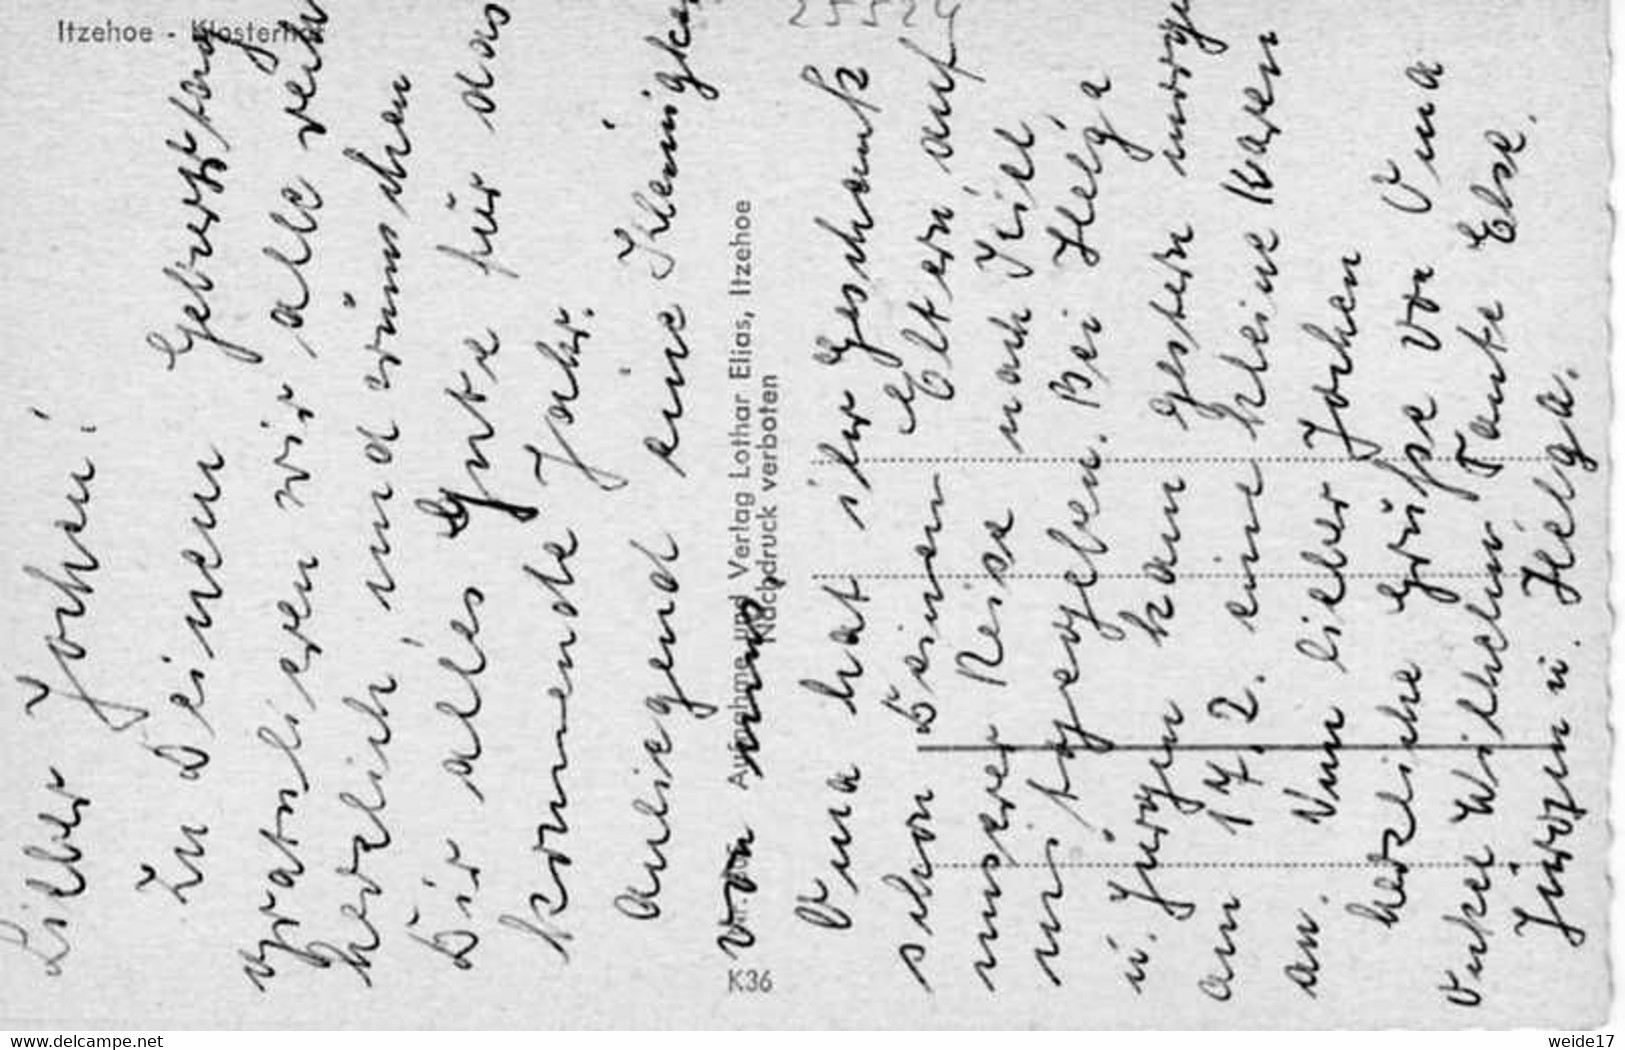 Itzehoe - Klosterhof
25524
Lieber Jochen!
Zu Deinem Geburtstag
gratulieren wir alle recht
herzlich, und wünschen
Dir alles Gute für das
kommende Jahr.
Anliegend eine Kleinigkeit
von uns.
Oma hat ihr Geschenk
schon Deinen Eltern auf
unserer Reise nach Kiel
mitgegeben. Bei Helga
u. Jürgen kam gestern morgen
am 17.2. eine kleine Karen
an. Nun lieber Jochen
herzliche Grüße von Oma
Onkel Wilhelm Tante Else.
Jürgen u. Helga.
Aufnahme und Verlag Lothar Elias, Itzehoe
Nachdruck verboten
K36
www.delcampe.net
weide17